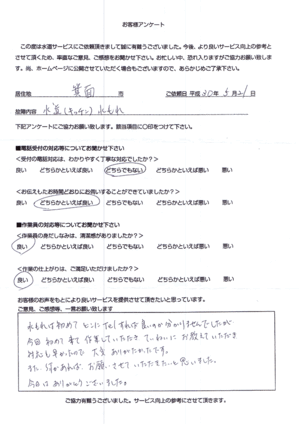 お客様アンケート
この度は水道サービスにご依頼頂きまして誠に有難うございました。今後、より良いサービス向上の参考と
させて頂くため、率直なご意見、ご感想をお聞かせ下さい。お忙しい中、恐れ入りますがご協力お願い致しま
す。尚、ホームページに公開させていただく場合もございますので、あらかじめご了承下さい。
居住地 箕面 市 ご依頼日 平成 30年 5月 21日
故障内容 水道(キッチン) 水もれ
下記アンケートにご協力お願い致します。該当項目に〇印をつけて下さい。
■電話受付の対応等についてお聞かせ下さい
<受付の電話対応は、わかりやすく丁寧な対応でしたか?>
良い どちらかといえば良い どちらでもない どちらかといえば悪い 悪い
<お伝えしたお時間どおりにお伺いすることができていましたか?>
良い どちらかといえば良い どちらでもない どちらかといえば悪い 悪い
■作業員の対応等についてお聞かせ下さい
<作業員の身だしなみは、清潔感がありましたか?>
良い どちらかといえば良い どちらでもない どちらかといえば悪い 悪い
<作業の仕上がりは、ご満足いただけましたか?>
良い どちらかといえば良い どちらでもない どちらかといえば悪い 悪い
お客様のお声をもとにより良いサービスを提供させて頂きたいと思っています。
ご意見、ご感想等、一言お願い致します
水もれは初めてでどこにTELすれば良いのか分かりませんでしたが
今回初めて来て作業していただき ていねいにお教えていただき
対応も早かったので大変ありがたかったです。
また何かあれば お願いさせていただきたいと思いました。
今日は ありがとうございました。
ご協力有難うございました。サービス向上の参考にさせて頂きます。